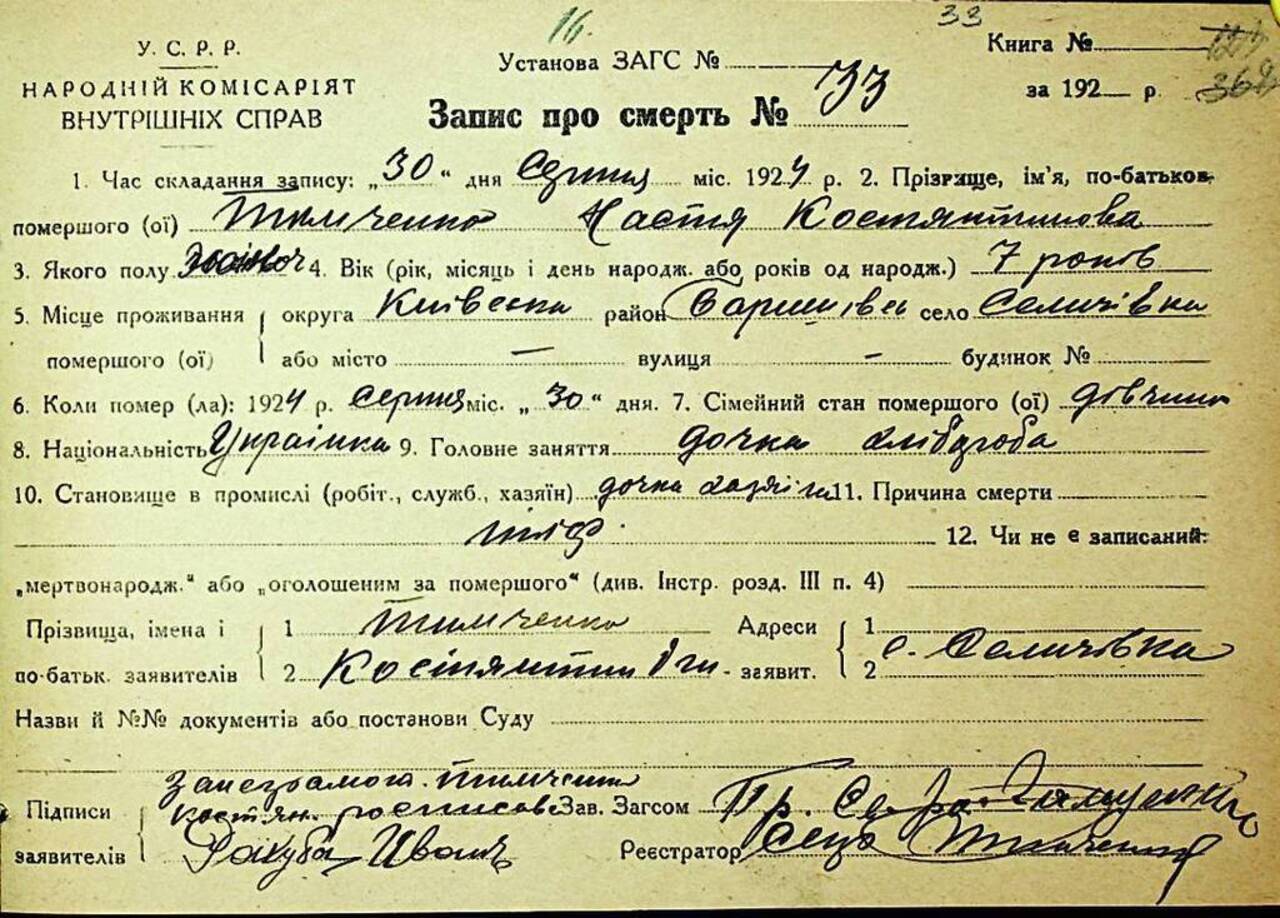 16.
33
У. С. Р. Р.
НАРОДНІЙ КОМІСАРІЯТ
ВНУТРІШНІХ СПРАВ
Установа ЗАГС №
Запис про смерть № 33
Книга №
за 192 р. 368
1. Час складання запису: „30“ дня Серпня міс. 1924 р. 2. Прізвище, ім'я, по-батьков.
помершого (ої) Тимченко Настя Костянтинова
3. Якого полу жіноч 4. Вік (рік, місяць і день народж. або років од народж.) 7 років
5. Місце проживання округа Київська район Баришівсь село Селичівка
помершого (ої) або місто — вулиця — будинок №
6. Коли помер (ла): 1924 р. Серпня міс. „30“ дня. 7. Сімейний стан помершого (ої) дівчина
8. Національність Українка 9. Головне заняття дочка хлібороба
10. Становище в промислі (робіт., служб., хазяїн) дочка хазяїна 11. Причина смерти
тиф. 12. Чи не є записаний:
„мертвонародж.“ або „оголошеним за помершого“ (див. Інстр. розд. III п. 4)
Прізвища, імена і 1 Тимченко Адреси 1
по-батьк. заявителів 2 Костянтин - заявит. 2 с. Селичівка
Назви й №№ документів або постанови Суду
За неграмота. Тимченка
Підписи Костян. росписовс Зав. Загсом Пр.
заявителів Іванъ Реєстратор Тимченко